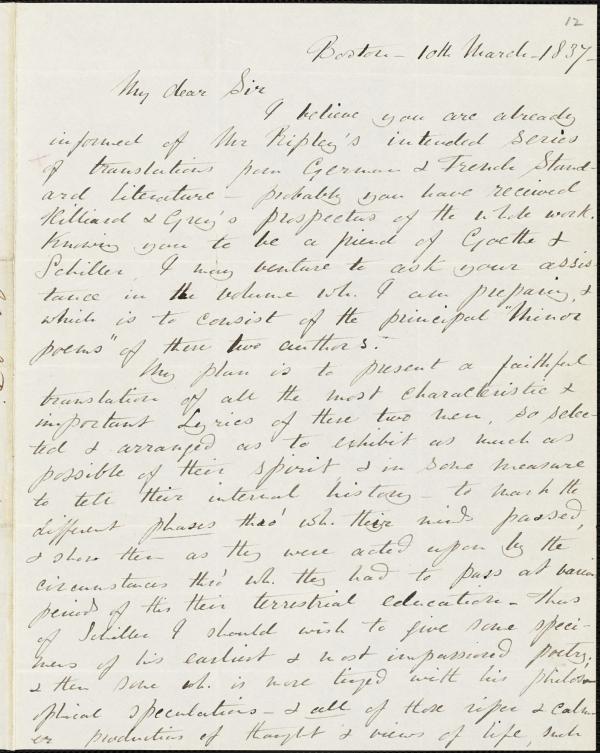 12
Boston - 10th March - 1837 -
My dear Sir
I believe you are already
informed of Mr Ripley's intended series
of translations from German & French Stand-
ard literature - probably you have received
Hilliard & Grey's prospectus of the whole work.
Knowing you to be a friend of Goethe &
Schiller, I may venture to ask your assis
tance in the volume wh. I am preparing, &
which is to consist of the principal "Minor
poems" of these two authors.
My plan is to present a faithful
translation of all the most characteristic &
important Lyrics of these two men, so selec-
ted & arranged as to exhibit as much as
possible of their spirit, & in some measure
to tell their internal history - to mark the
different phases thro' wh. their minds passed,
& show them as they were acted upon by the
circumstances thro' wh. they had to pass at various
periods of this their terrestrial education - Thus
of Schiller I should wish to give some speci-
mens of his earliest & most impassioned poetry;
& then some wh. is more tinged with his philoso
ophical speculations - & all of those riper & calm-
er productions of thought & views of life, such